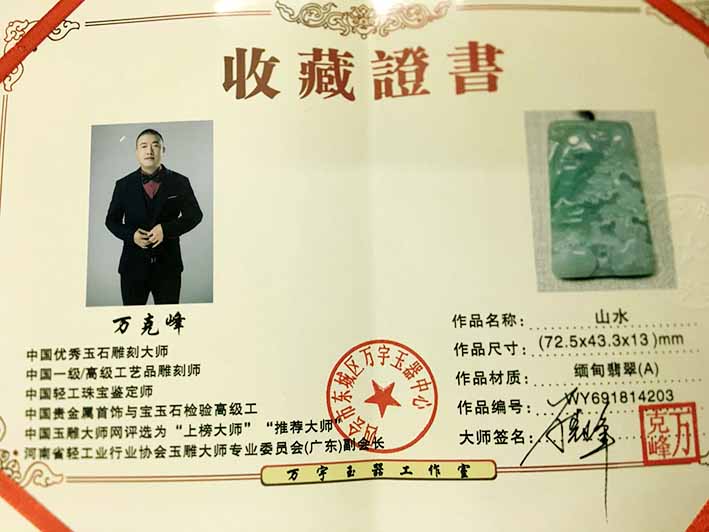 收藏證書
万克峰
中国优秀玉石雕刻大师
中国一级/高级工艺品雕刻师
中国轻工珠宝鉴定师
中国贵金属首饰与宝玉石检验高级工
中国玉雕大师网评选为“上榜大师”“推荐大师”
河南省轻工业行业协会玉雕大师专业委员会(广东)副会长
作品名称: 山水
作品尺寸: (72.5x43.3x13)mm
作品材质: 缅甸翡翠(A)
作品编号: WY691814203
大师签名: 万克峰
万克峰
市东城区万宇玉器中心
万宇玉器工作室